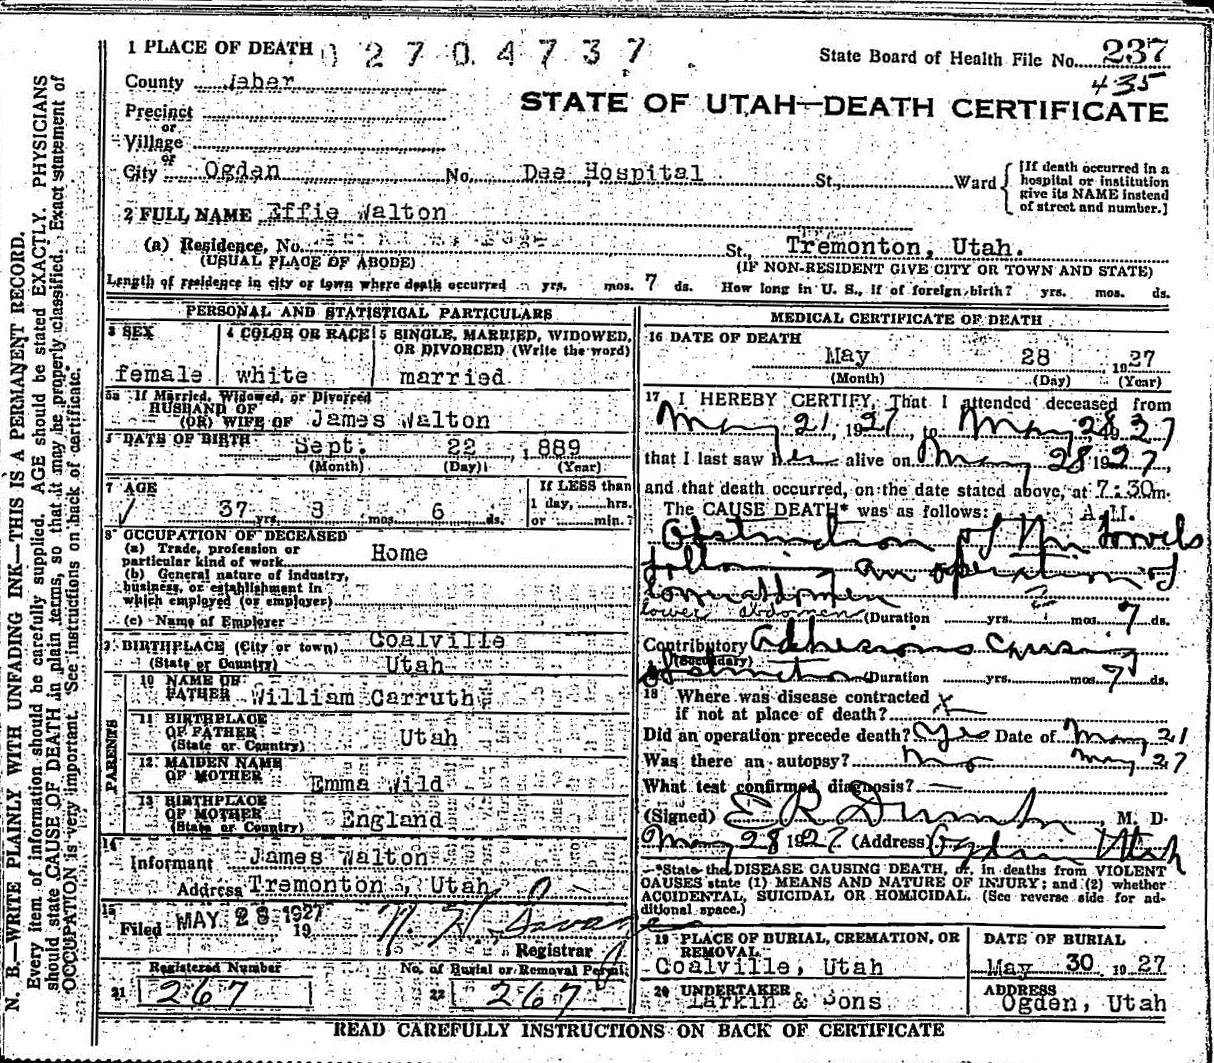 1 PLACE OF DEATH 02704737
State Board of Health File No. 237
435
County Weber
STATE OF UTAH—DEATH CERTIFICATE
Precinct
or
Village
or
City Ogden No. Dee Hospital St., Ward
[If death occurred in a hospital or institution give its NAME instead of street and number.]
2 FULL NAME Effie Walton
(a) Residence, No. St., Tremonton, Utah.
(USUAL PLACE OF ABODE) (IF NON-RESIDENT GIVE CITY OR TOWN AND STATE)
Length of residence in city or town where death occurred yrs. mos. 7 ds. How long in U. S., if of foreign birth? yrs. mos. ds.
PERSONAL AND STATISTICAL PARTICULARS
3 SEX
female
4 COLOR OR RACE
white
5 SINGLE, MARRIED, WIDOWED,
OR DIVORCED (Write the word)
married
5a If Married, Widowed, or Divorced
HUSBAND OF
(OR) WIFE OF James Walton
DATE OF BIRTH Sept. 22 , 889
(Month) (Day) (Year)
7 AGE
37 yrs. 3 mos. 6 ds.
If LESS than
1 day, hrs.
or min.?
8 OCCUPATION OF DECEASED
(a) Trade, profession or
particular kind of work Home
(b) General nature of industry,
business, or establishment in
which employed (or employer)
(c) Name of Employer
9 BIRTHPLACE (City or town) Coalville
(State or Country) Utah
PARENTS
10 NAME OF
FATHER William Carruth
11 BIRTHPLACE
OF FATHER
(State or Country) Utah
12 MAIDEN NAME
OF MOTHER Emma Wild
13 BIRTHPLACE
OF MOTHER
(State or Country) England
14
Informant James Walton
Address Tremonton, Utah
15
Filed MAY 28 1927
19
Registrar
Registered Number
21 267
No. of Burial or Removal Permit
22 267
MEDICAL CERTIFICATE OF DEATH
16 DATE OF DEATH
May 28 , 1927
(Month) (Day) (Year)
17 I HEREBY CERTIFY, That I attended deceased from
May 21, 1927, to May 28 1927
that I last saw her alive on May 28 1927,
and that death occurred, on the date stated above, at 7:30 m.
The CAUSE DEATH* was as follows: A.M.
Obstruction of the bowels
following an operation of
lower abdomen
lower abdomen (Duration yrs. mos. 7 ds.
Contributory Adhesions causing
(Secondary)
obstruction (Duration yrs. mos. 7 ds.
18 Where was disease contracted
if not at place of death?
Did an operation precede death? Yes Date of May 21
Was there an autopsy? No May 27
What test confirmed diagnosis?
(Signed) E R , M. D.
May 28 1927 (Address) Ogden Utah
*State the DISEASE CAUSING DEATH, or, in deaths from VIOLENT
CAUSES state (1) MEANS AND NATURE OF INJURY; and (2) whether
ACCIDENTAL, SUICIDAL OR HOMICIDAL. (See reverse side for ad-
ditional space.)
19 PLACE OF BURIAL, CREMATION, OR
REMOVAL
Coalville, Utah
DATE OF BURIAL
May 30 1927
20 UNDERTAKER
Larkin & Sons
ADDRESS
Ogden, Utah
READ CAREFULLY INSTRUCTIONS ON BACK OF CERTIFICATE
N. B.—WRITE PLAINLY WITH UNFADING INK—THIS IS A PERMANENT RECORD.
Every item of information should be carefully supplied. AGE should be stated EXACTLY. PHYSICIANS
should state CAUSE OF DEATH in plain terms, so that it may be properly classified. Exact statement of
OCCUPATION is very important. See instructions on back of certificate.